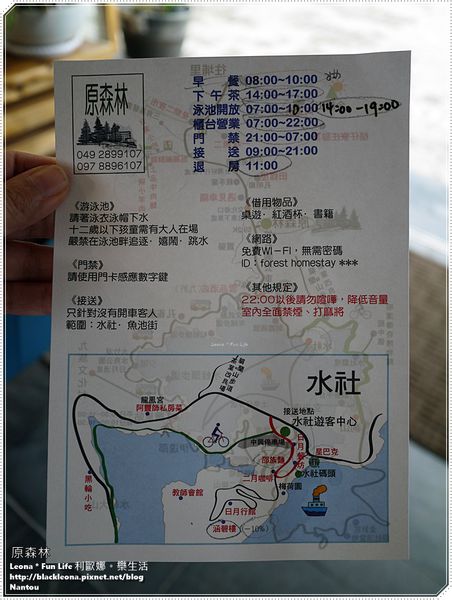 往埔里
原森林
049 2899107
097 8896107
早餐 08:00~10:00
下午茶 14:00~17:00
泳池開放 07:00~10:00 14:00-19:00
櫃台營業 07:00~22:00
門禁 21:00~07:00
接送 09:00~21:00
退房 11:00
《游泳池》
請著泳衣泳帽下水
十二歲以下孩童需有大人在場
嚴禁在泳池畔追逐、嬉鬧、跳水
《門禁》
請使用門卡感應數字鍵
《接送》
只針對沒有開車客人
範圍:水社、魚池街
《借用物品》
桌遊、紅酒杯、書籍
《網路》
免費Wi-Fi,無需密碼
ID:forest homestay ***
《其他規定》
22:00以後請勿喧嘩,降低音量
室內全面禁煙、打麻將
Leona * Fun Life
水社
龍鳳宮
阿豐師私房菜
接送地點
水社遊客中心
中興停車場
邵族麵
日月餐坊
星巴克
水社碼頭
二月咖啡
梅荷園
黑輪小吃
教師會館
日月行館
涵碧樓 (-10%)
原森林
Leona * Fun Life 利歐娜。樂生活
http://blackleona.pixnet.net/blog
Nantou